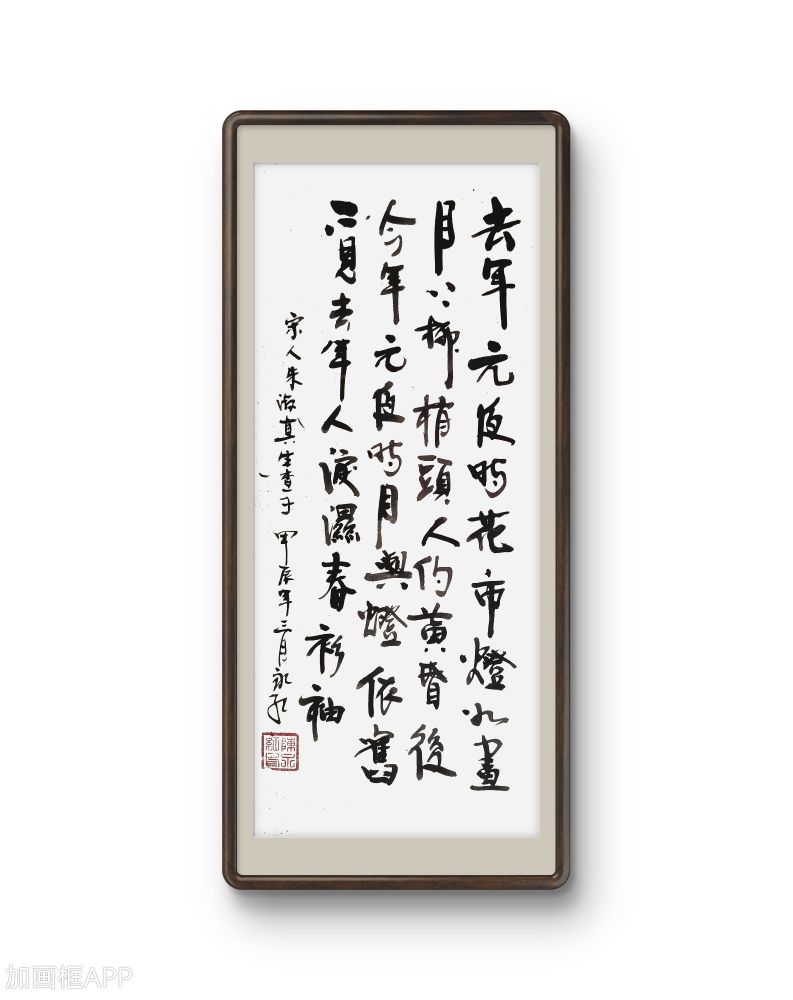 去年元夜時花市燈如晝
月上柳梢頭人約黃昏後
今年元夜時月與燈依舊
不見去年人淚濕春衫袖
宋人朱淑真生查子 甲辰年三月永红
陳永紅
加画框APP